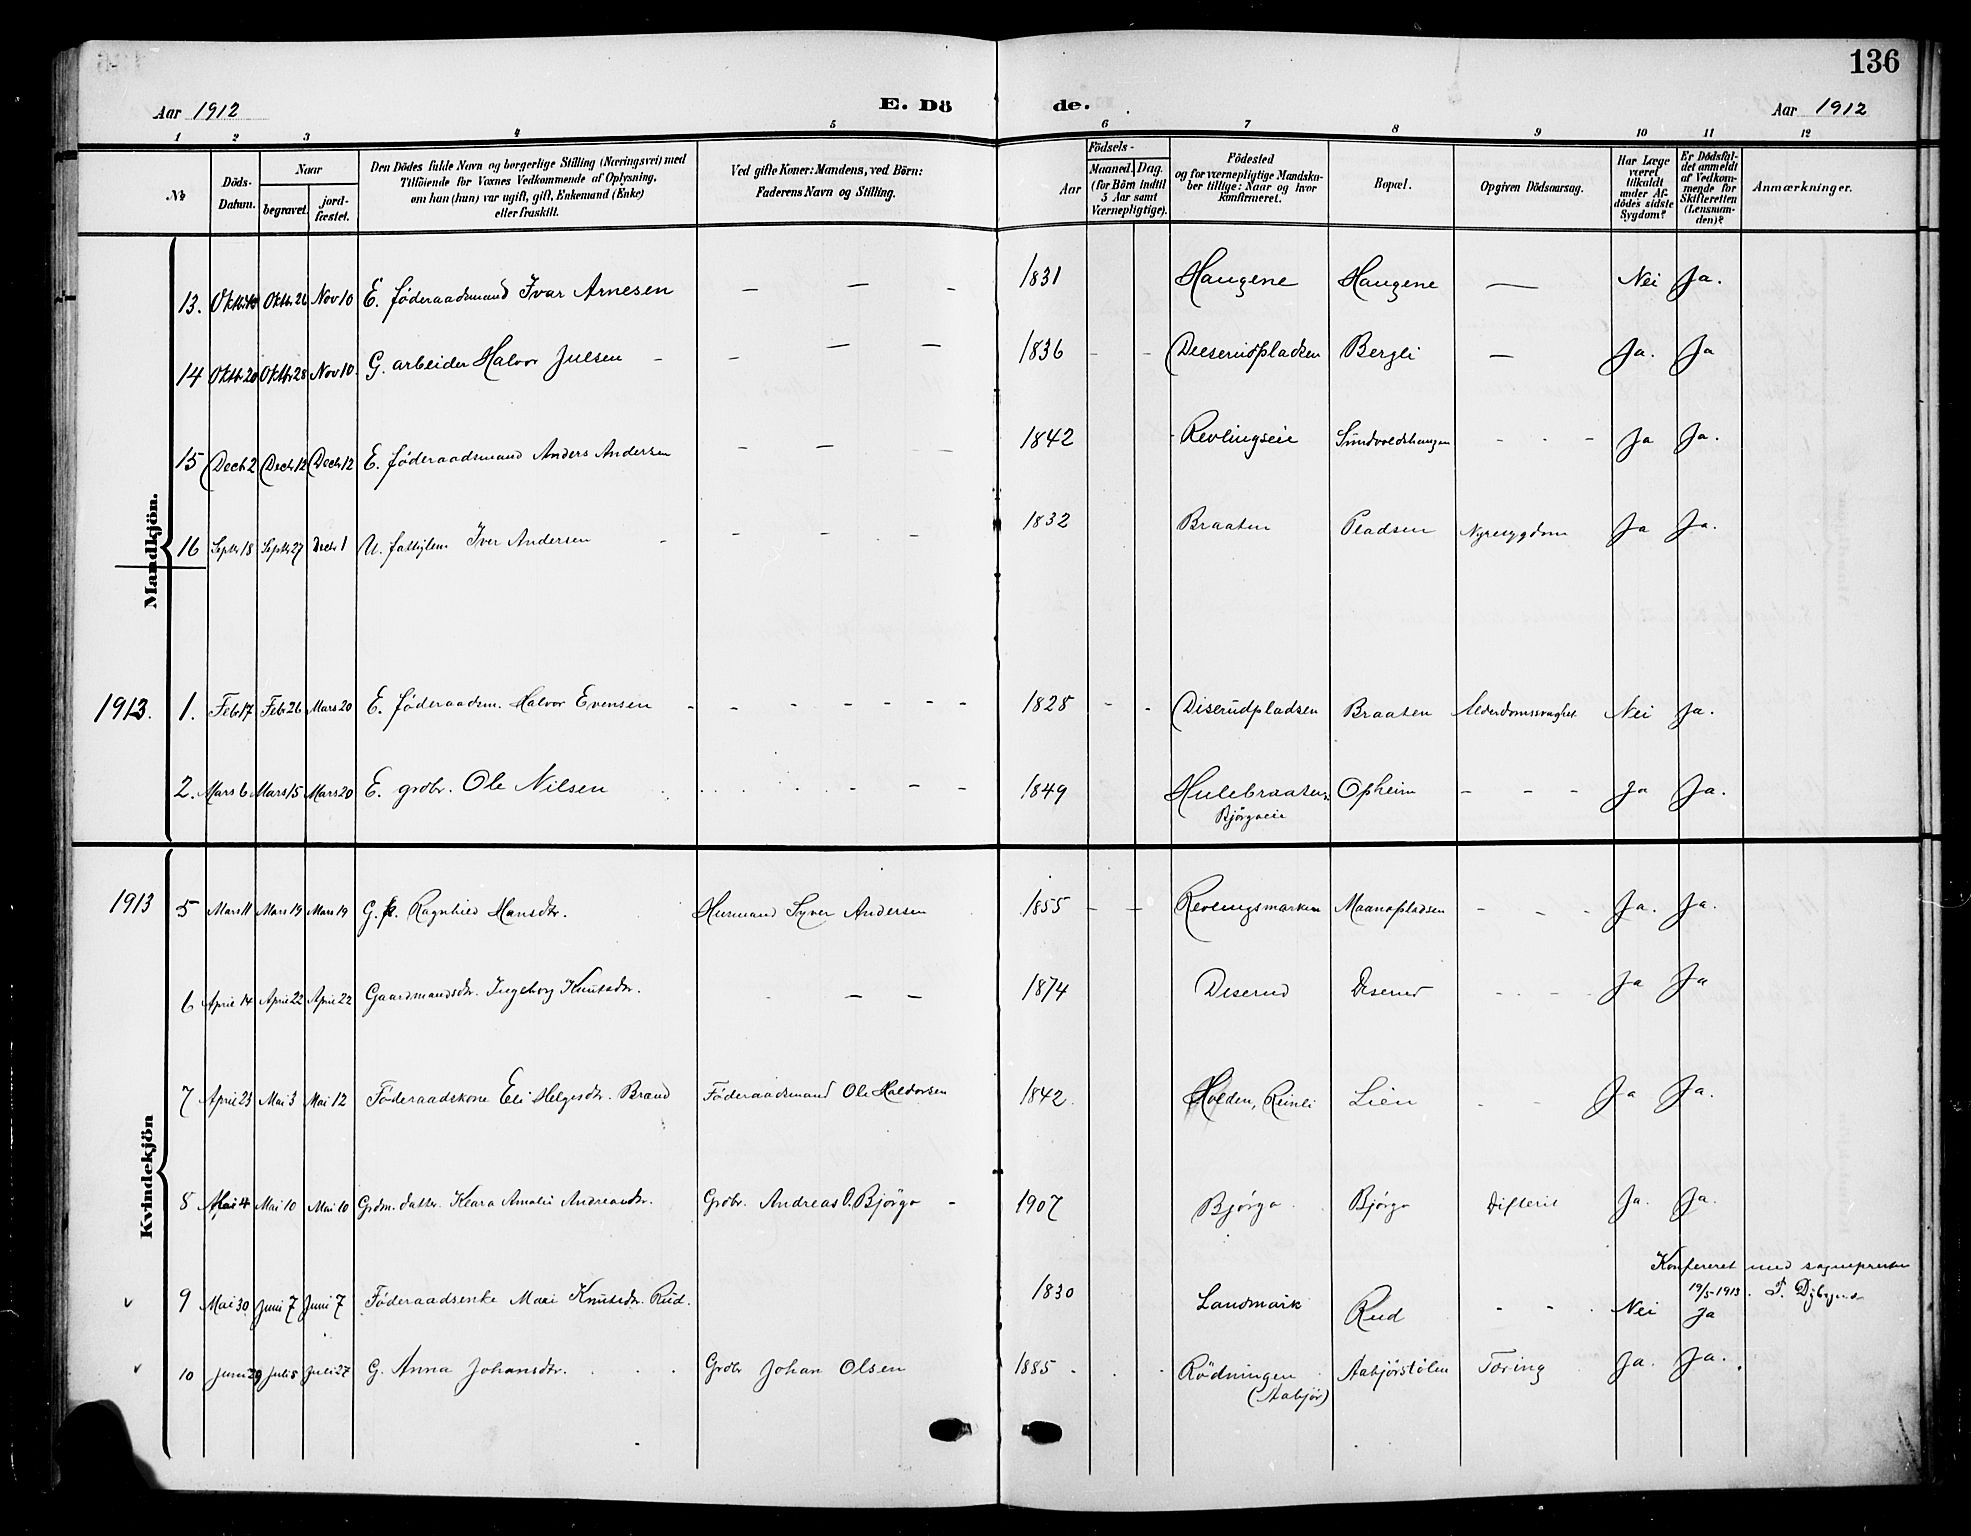 136
Aar 1912 E. Dö de. Aar 1912
1 2 3 4 5 6 7 8 9 10 11 12
№ Döds-Datum. Naar begravet. jord-fæstet. Den Dödes fulde Navn og borgerlige Stilling (Næringsvei) med Tilföiende for Voxnes Vedkommende af Oplysning, om han (hun) var ugift, gift, Enkemand (Enke) eller fraskilt. Ved gifte Koner: Mandens, ved Börn: Faderens Navn og Stilling. Födsels- Aar Maaned. Dag. (for Börn indtil 5 Aar samt Værnepligtige). Födested og for værnepligtige Mandskaber tillige: Naar og hvor konfirmeret. Bopæl. Opgiven Dödsaarsag. Har Læge været tilkaldt under Afdödes sidste Sygdom? Er Dödsfaldet anmeldt af Vedkommende for Skifteretten (Lensmanden)? Anmærkninger.
Mandkjön.
13. Oktbr Oktbr 26 Nov 10 E. föderaadsmand Ivar Arnesen — — — 1831 Haugene Haugene — Nei Ja.
14 Oktbr 20 Oktbr 28 Nov 10. G. arbeider Halvor Julsen - - — — 1836 - - Deeserudpladsen Bergli — Ja. Ja
15 Decb 2 Decb 12 Decb 12 E. föderaadsmand Anders Andersen - — - 1842 Revlingseie Sundvoldshaugen - - - Ja Ja.
16 Septb 18 Septb 27 Decb 1 U. fattiglem Iver Andersen - - - - - 1832 Braaten Pladsen Nyresygdom Ja Ja.
1913. 1. Feb 17 Feb 26 Mars 20 E. föderaadsm. Halvor Evensen - - - - - - - 1828 - - Diserudpladsen Braaten Alderdomssvaghet Nei Ja.
2. Mars 6 Mars 15 Mars 20 E. grdbr. Ole Nilsen - - - 1849 Hulebraaten Opheim - - - Ja Ja.
Björgoeie
Kvindekjön
1913 5 Mars 11 Mars 19 Mars 19 G. k. Ragnhild Hansdtr. Husmand Syver Andersen 1855 - - Revlingsmarken Maanapladsen - - - Ja. Ja.
6 April 14 April 22 April 22 Gaardmandsdtr. Ingeborg Knutsdtr. - - 1874 Diserud Diserud - - - Ja Ja
7 April 23 Mai 3 Mai 12 Föderaadskone Eli Helgesdtr. Brand Föderaadsmand Ole Haldorsen 1842 Holden, Reinli Lien - - Ja Ja.
8 Mai 4 Mai 10 Mai 10 Grdm. datter Klara Amalie Andreasdtr. Grdbr. Andreas O. Björgo - 1907 Björgo Björgo Difterit Ja. Ja.
Konfereret med sogneprester
19/5-1913. P. Dybesland
9 Mai 30. Juni 7 Juni 7 Föderaadsenke Mari Knutsdtr. Rud. 1830 Landmark Rud - - Nei Ja
10 Juni 29 Juli 5 Juli 27 G. Anna Johansdtr. Grdbr Johan Olsen 1885 Rödningen Aabjörstölen Tæring Ja. Ja.
(Aabjör)